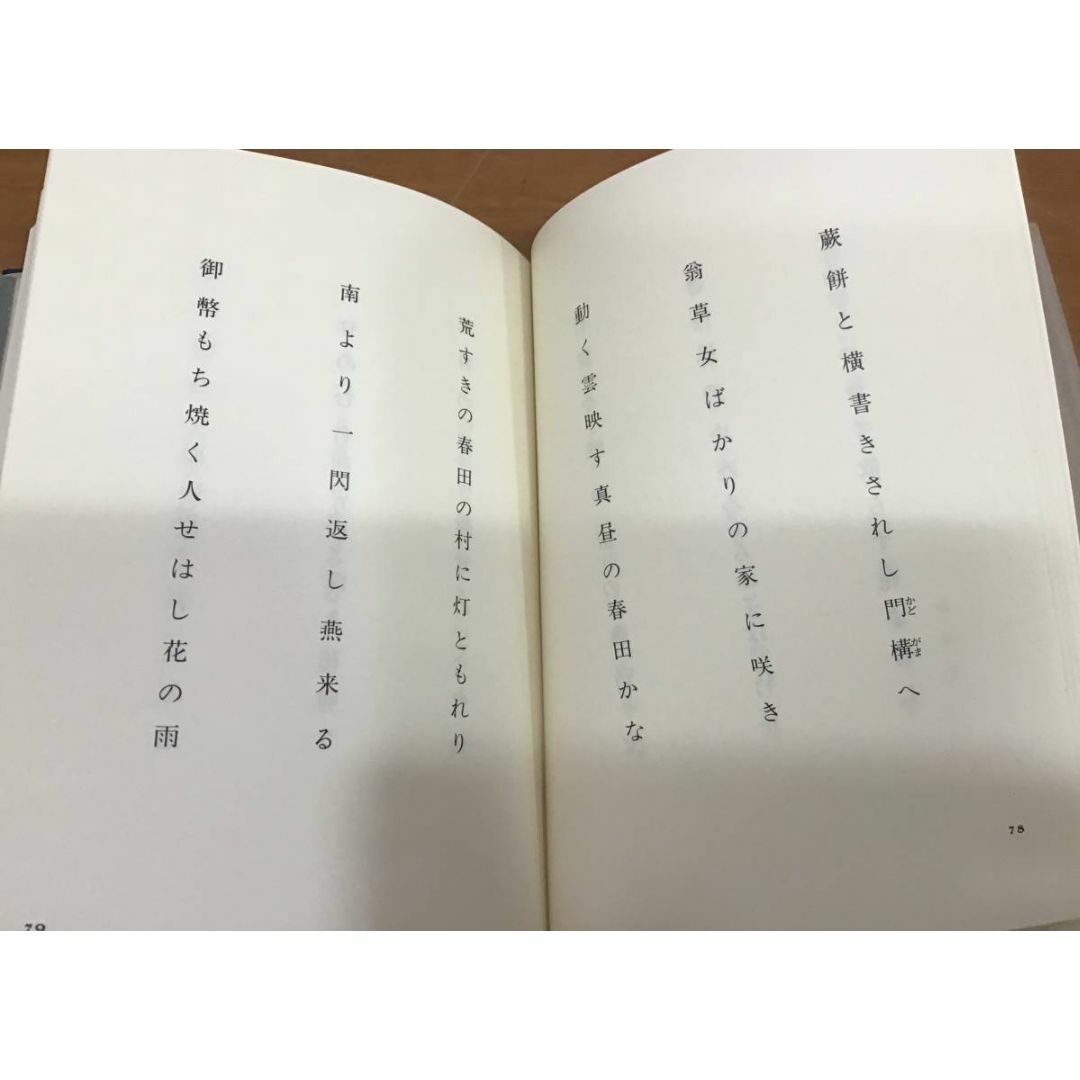 蕨餅と横書きされし門構へ
かどがま
翁草女ばかりの家に咲き
動く雲映す真昼の春田かな
78
荒すきの春田の村に灯ともれり
南より一閃返し燕来る
御幣もち焼く人せはし花の雨
79